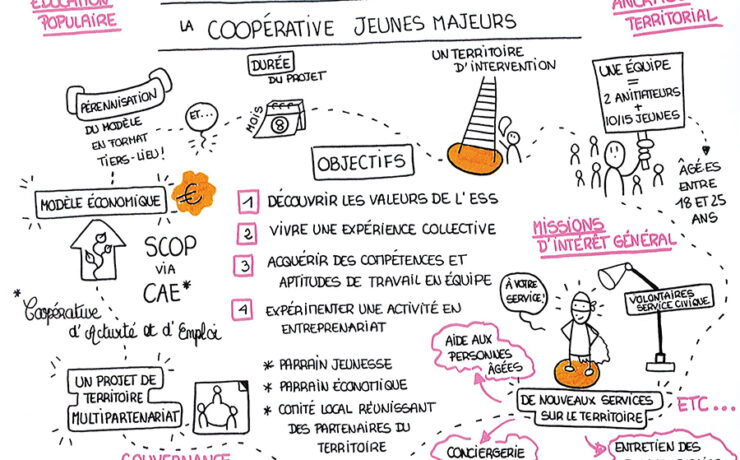 ÉDUCATION
POPULAIRE
LA COOPÉRATIVE JEUNES MAJEURS
TERRITORIAL
DURÉE
DU PROJET
MOIS
8
UN TERRITOIRE
D'INTERVENTION
UNE ÉQUIPE
=
2 ANIMATEURS
+
10/15 JEUNES
ÂGÉES
ENTRE
18 ET 25
ANS
PÉRENNISATION
DU MODÈLE
EN FORMAT
TIERS-LIEU!
ET...
OBJECTIFS
1 DÉCOUVRIR LES VALEURS DE L'ESS
2 VIVRE UNE EXPÉRIENCE COLLECTIVE
3 ACQUÉRIR DES COMPÉTENCES ET
APTITUDES DE TRAVAIL EN ÉQUIPE
4 EXPÉRIMENTER UNE ACTIVITÉ EN
ENTREPRENARIAT
MODÈLE ÉCONOMIQUE
€
SCOP
VIA
CAE*
* Coopérative
d'Activité et d'Emploi
UN PROJET DE
TERRITOIRE
MULTIPARTENARIAT
* PARRAIN JEUNESSE
* PARRAIN ÉCONOMIQUE
* COMITÉ LOCAL RÉUNISSANT
DES PARTENAIRES DU
TERRITOIRE
GOUVERNANCE
MISSIONS
D'INTÉRÊT GÉNÉRAL
À VOTRE
SERVICE!
VOLONTAIRES
SERVICE CIVIQUE
AIDE AUX
PERSONNES
ÂGÉES
DE NOUVEAUX SERVICES
SUR LE TERRITOIRE
ETC...
CONCIERGERIE
ENTRETIEN DES